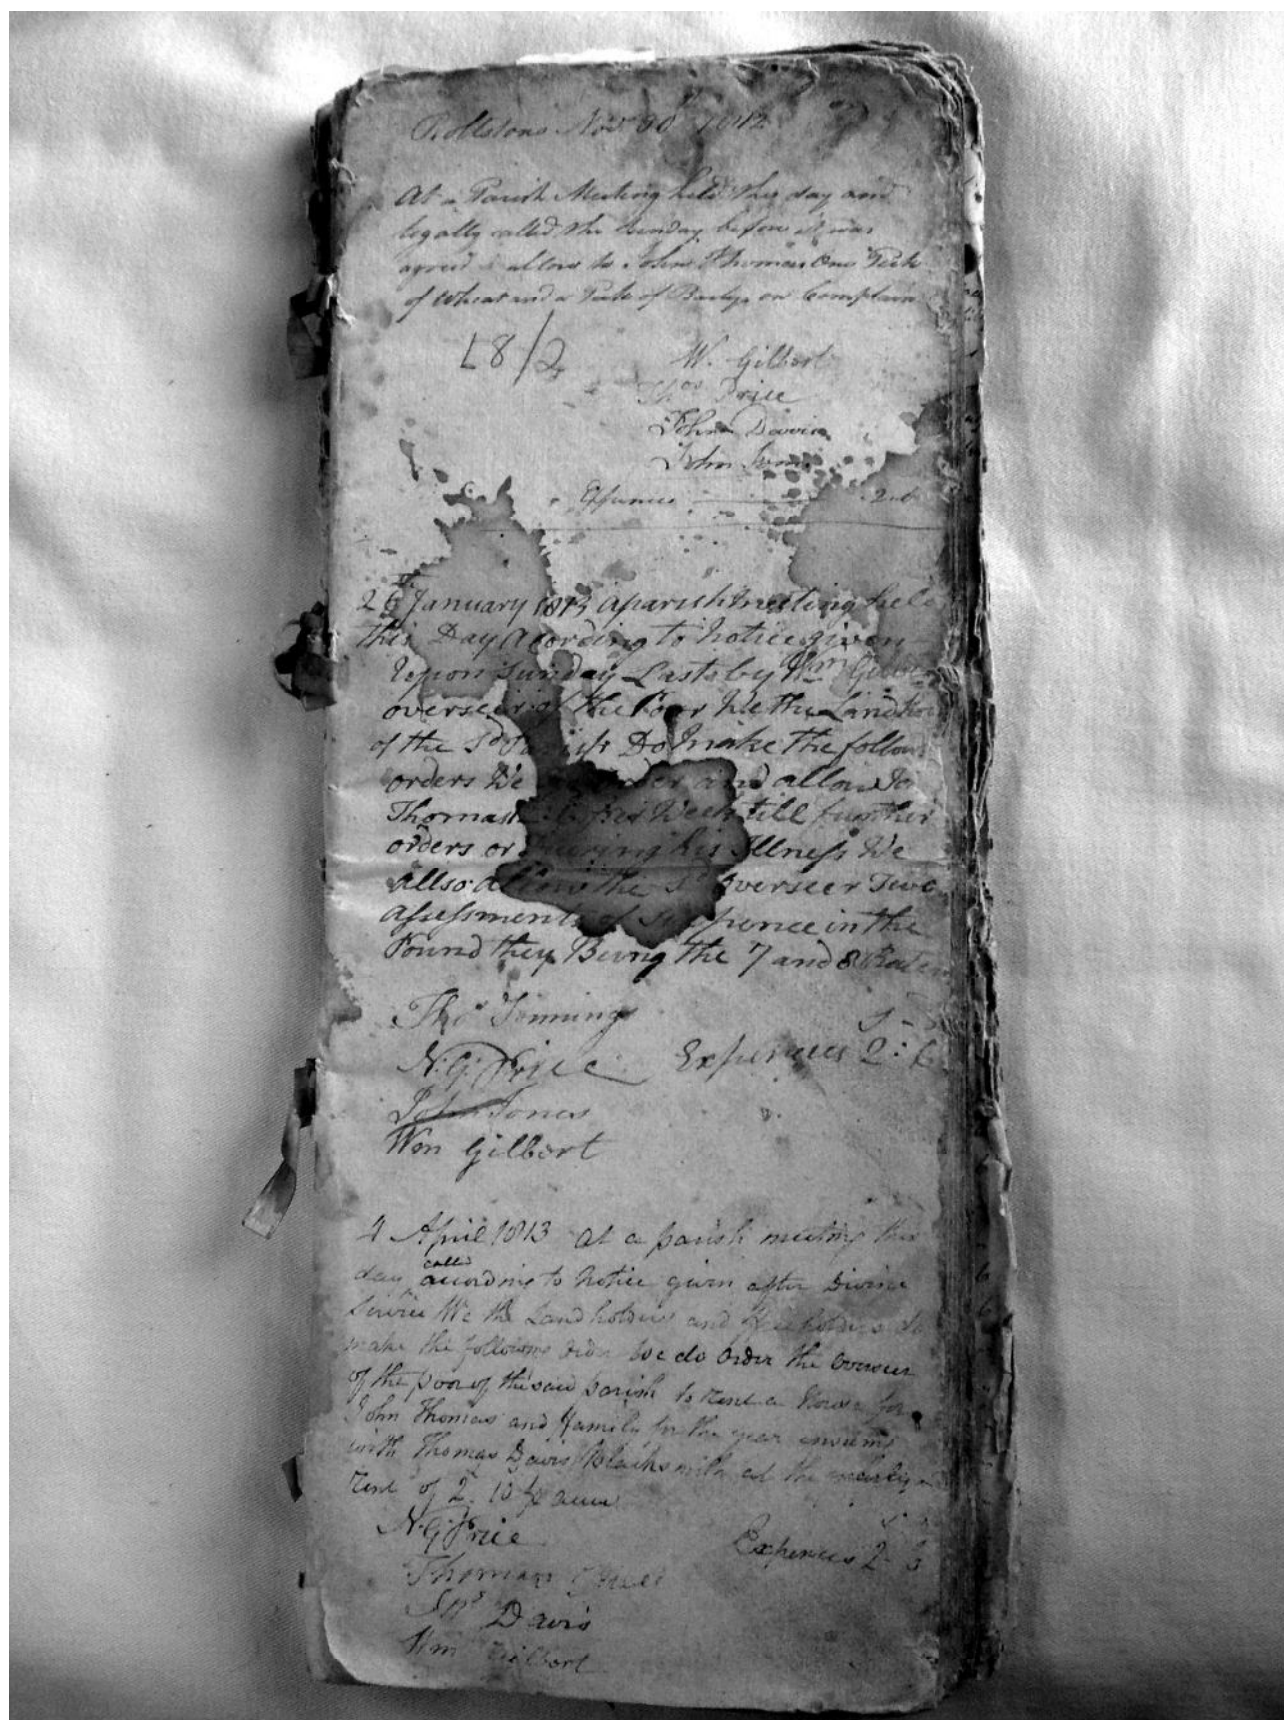 Rollstone Nov 30 1812
At a Parish Meeting held this day and
legally called the Sunday before it was
agreed to allow to John Thomas One Peck
of Wheat and a Peck of Barley on Complain
L8/2
W. Gilbert
Thos Price
John Davis
John
Expences 2
26th January 1813 a parish meeting held
this Day Acording to Notice given
Upon Sunday Last by Wm
overseer of the Poor We the
of the Sd Parish Do Make the
orders We order and allow
Thomas per Week till further
orders or During his Illness We
allso allow the Sd overseer Two
assessments of Sixpence in the
Pound they Being the 7 and 8
Thos Jennings
N. G. Price Expences 2:6
John Jones
Wm Gilbert
4 April 1813 at a parish meeting this
day called according to Notice given after Divine
Service We the Land holders and freeholders do
make the following order We do order the overseer
of the poor of the said parish to rent a House for
John Thomas and Family for the year ensuing
with Thomas Davis Blacksmith at the yearly
rent of 2. 10
N. G. Price
Expences 2
Thomas
Davis
Wm Gilbert